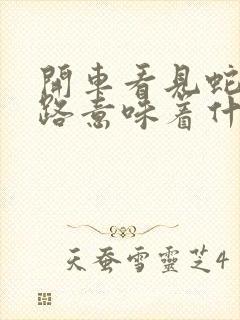 開車看見蛇
路意味著什
天蚕雪靈芝4